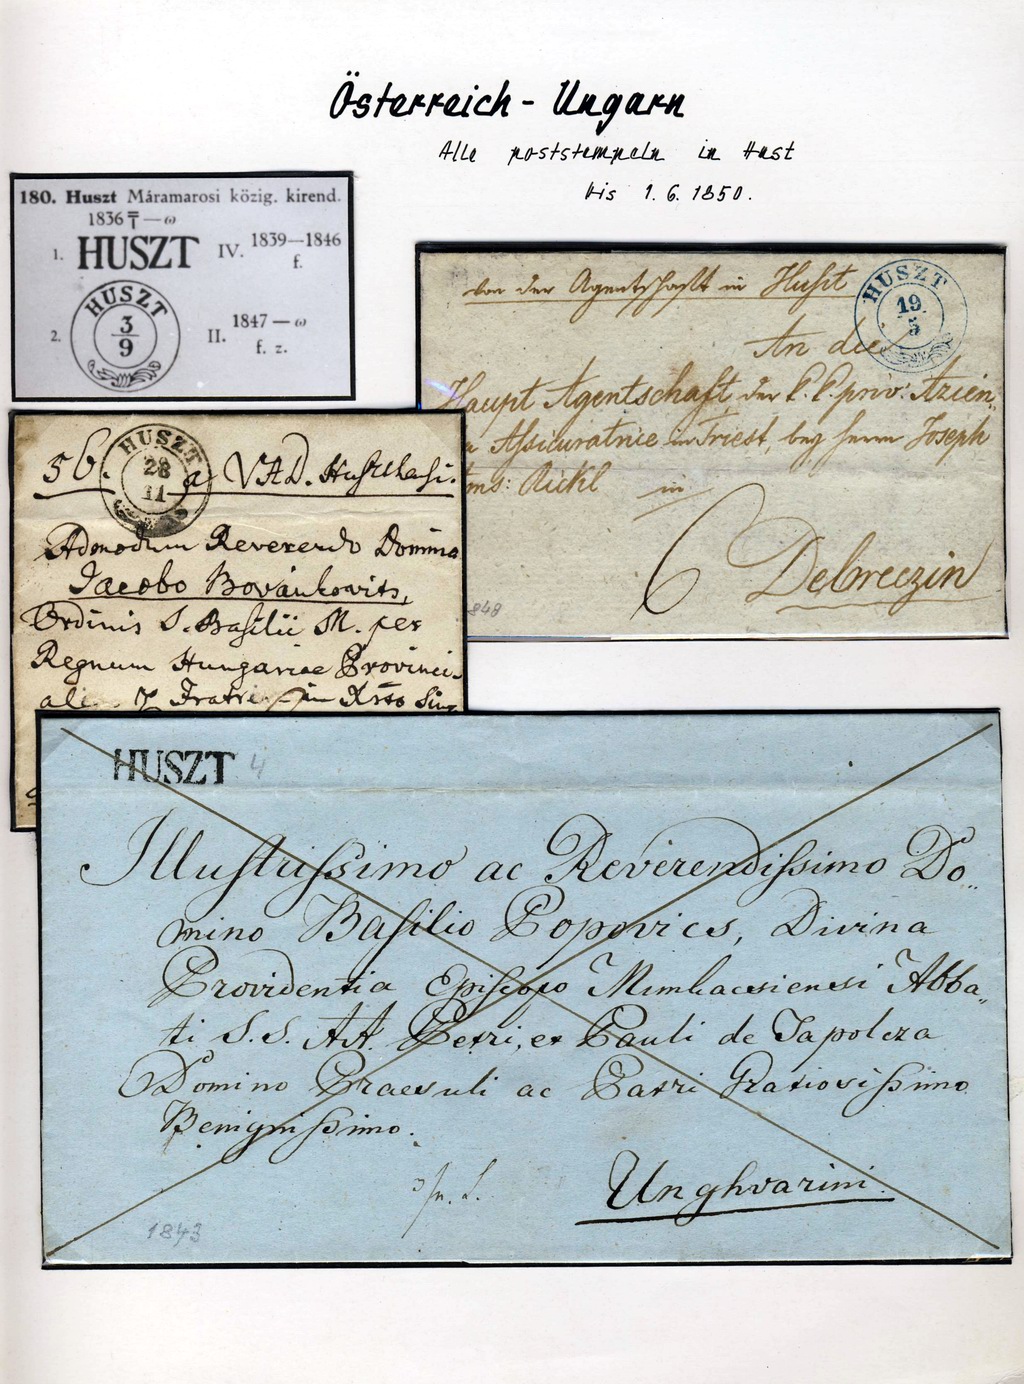 Österreich - Ungarn
Alle poststempeln in Hust
bis 1. 6. 1850.
180. Huszt Máramarosi közig. kirend.
1836 — ω
1. HUSZT IV. 1839—1846
f.
HUSZT
3
9
2. II. 1847 — ω
f. z.
von der Agentschaft in Huszt
HUSZT
19
5
An die
Haupt Agentschaft der k. k. priv: Azien
Assicuratrice in Triest, bey Herrn Joseph
Rickl in
6 Debreczin
848
HUSZT
28
11
56. a VAD. Huszthasi.
Admodum Reverendo Domino
Jacobo Bovánkovits,
Ordinis S. Basilii M. per
Regnum Hungariae Provinci
ali Fratri in Xrto
HUSZT 4
Illustrissimo ac Reverendissimo Do„
mino Basilio Popovics, Divina
Providentia Episcopo Munkacsiensi Abba„
ti S.S. AA. Petri, et Pauli de Tapolcza
Domino Praesuli ac Patri Gratiosissimo
Benignissimo.
Unghvarini.
1843